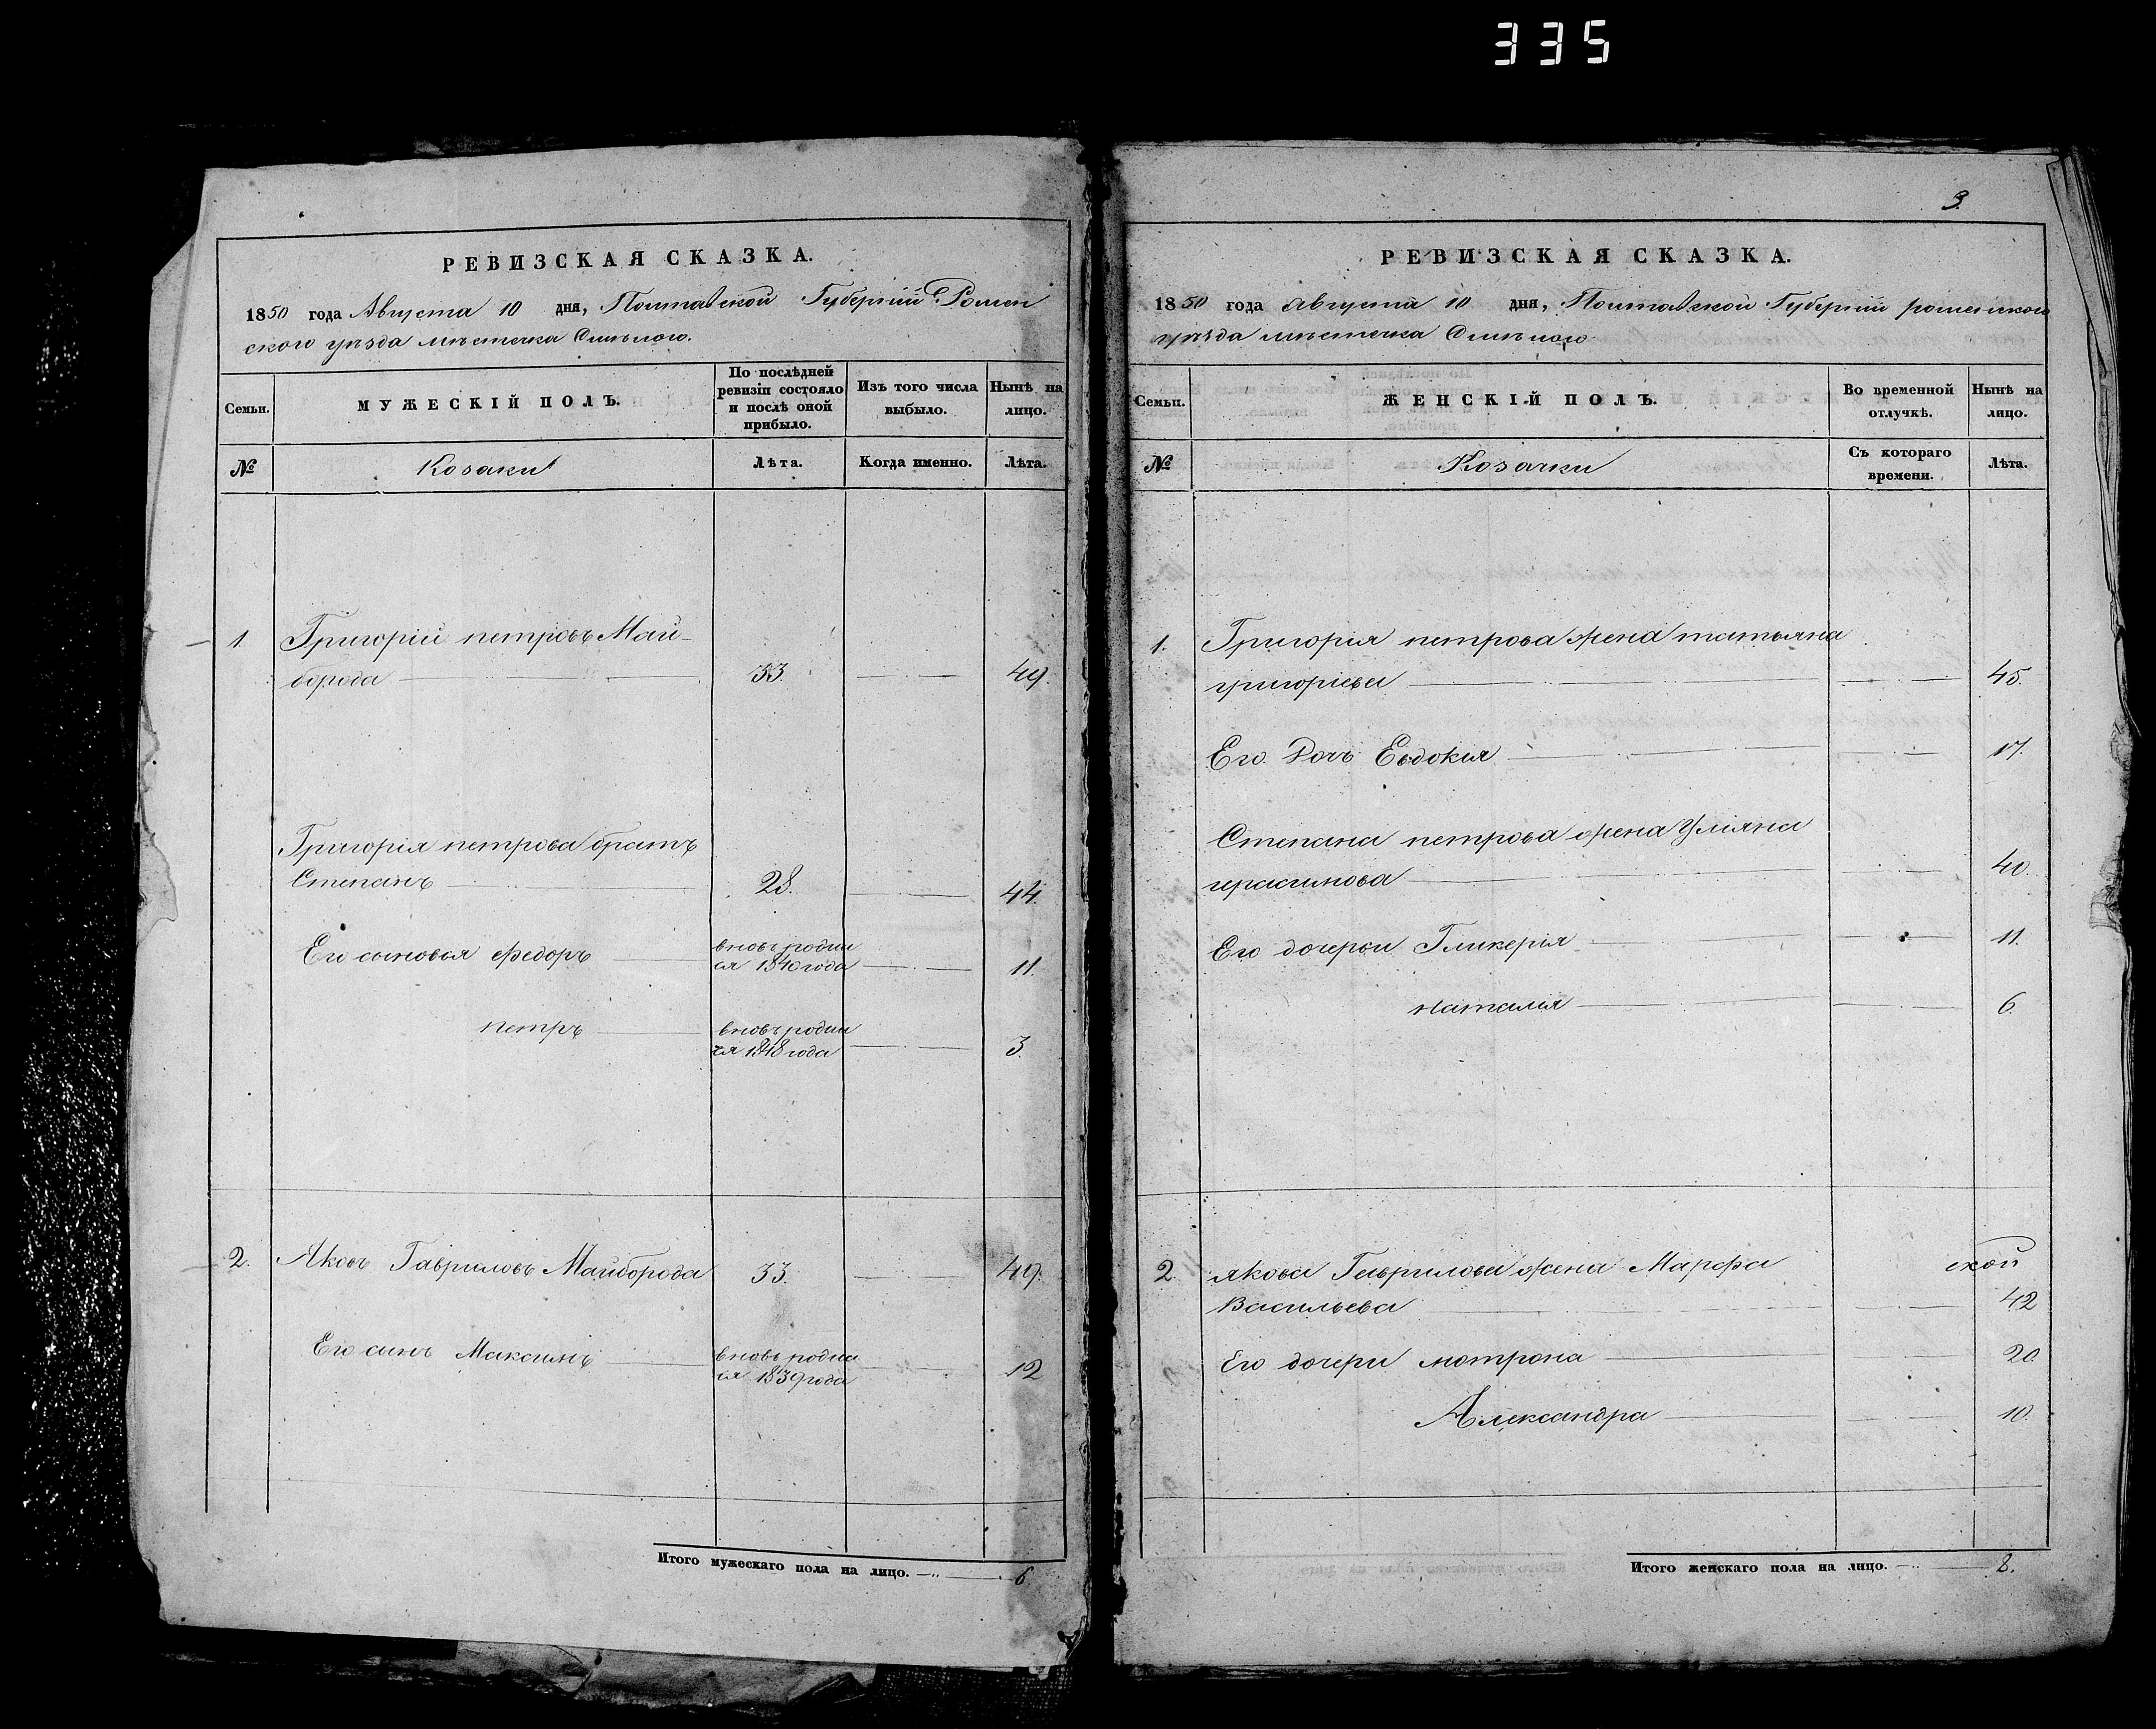 335
РЕВИЗСКАЯ СКАЗКА.
1850 года Августа 10 дня, Полтавской Губерніи Ромен
ского уезда местечка Смелого.
Семьи.
МУЖЕСКІЙ ПОЛЪ.
По послѣдней ревизіи состояло и послѣ оной прибыло.
Изъ того числа выбыло.
Нынѣ на лицо.
№
Козаки
Лѣта.
Когда именно.
Лѣта.
1. Григорій петровъ Май-
борода 33. 49.
Григорія петрова братъ
Степанъ 28. 44.
Его сыновья Федоръ вновь родил
ся 1840 года 11.
петръ вновь родил
ся 1848 года 3.
2. Яковъ Гавриловъ Майборода 33. 49.
Его сынъ Максимъ вновь родил
ся 1839 года 12
Итого мужескаго пола на лицо. 6.
3.
РЕВИЗСКАЯ СКАЗКА.
1850 года Августа 10 дня, Полтавской Губерніи роменского
уезда местечка Смелого
Семьи.
ЖЕНСКІЙ ПОЛЪ.
Во временной отлучкѣ.
Нынѣ на лицо.
№
Козачки
Съ котораго времени.
Лѣта.
1. Григорія петрова жена татьяна
григоріева 45.
Его Дочь Евдокія 17.
Степана петрова жена Уліяна
герасимова 40.
Его дочерьи Гликерія 11.
наталія 6.
2. якова Гаврилова жена Марфа
Васильева 42
Его дочери мотрона 20.
Александра 10.
ской
Итого женскаго пола на лицо. 8.